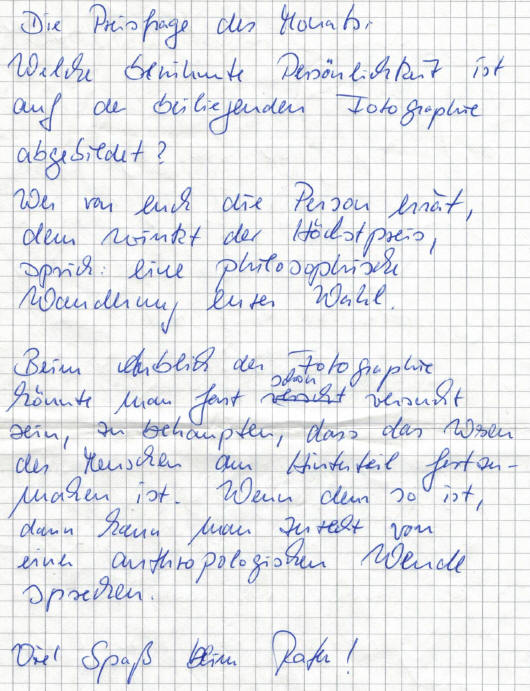 Die Preisfrage des Monats:
Welche berühmte Persönlichkeit ist
auf der beiliegenden Fotographie
abgebildet?
Wer von euch die Person errät,
dem winkt der Höchstpreis,
sprich: eine philosophische
Wanderung eurer Wahl.
Beim Anblick der Fotographie
könnte man fast schon versucht
sein, zu behaupten, dass das Wesen
des Menschen am Hinterteil festzu-
machen ist. Wenn dem so ist,
dann kann man zurecht von
einer anthropologischen Wende
sprechen.
Viel Spaß beim Raten!